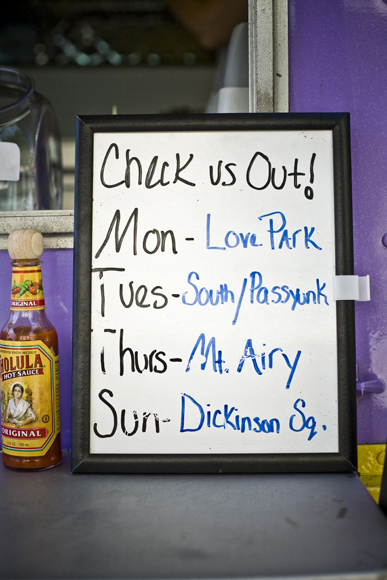 Check us Out!
Mon - Love Park
Tues - South/Passyunk
Thurs - Mt. Airy
Sun - Dickinson Sq.
ORIGINAL
HOLULA
HOT SAUCE
ORIGINAL